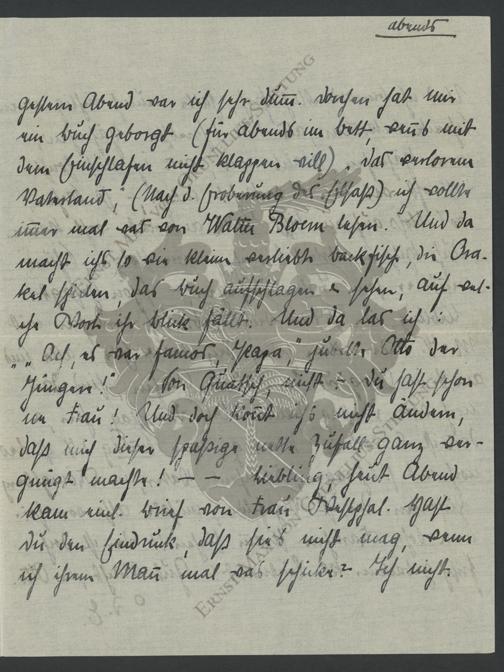 abends
gestern Abend war ich sehr dum̅. Dorchen hat mir
ein Buch geborgt (für abends im bett, wenns mit
dem Einschlafen nicht klappen will), „das verlorene
Vaterland", (Nach d. Eroberung des Elsaß) ich wollte
im̅er mal was von Walter Bloem lesen. Und da
macht ichs so wie kleine verliebte backfische, die Ora-
kel spielen, das buch aufschlagen u sehen, auf wel-
che Worte ihr blick fällt. Und da las ich:
„„Ach, es war famos, Papa," jubelte Otto der
Jüngere!" Son Quatsch, nicht? – du hast schon
ne Frau! Und doch kon̅t ichs nicht ändern,
daß mich dieser spaßige nette Zufall ganz ver-
gnügt machte! – – Liebling, heut Abend
kam ein brief von Frau Westphal. Hast
du den Eindruck, daß sie's nicht mag, wenn
ich ihrem Man̅ mal was schicke? Ich nicht.
ERNST MAX VON GRUNELIUS-STIFTUNG